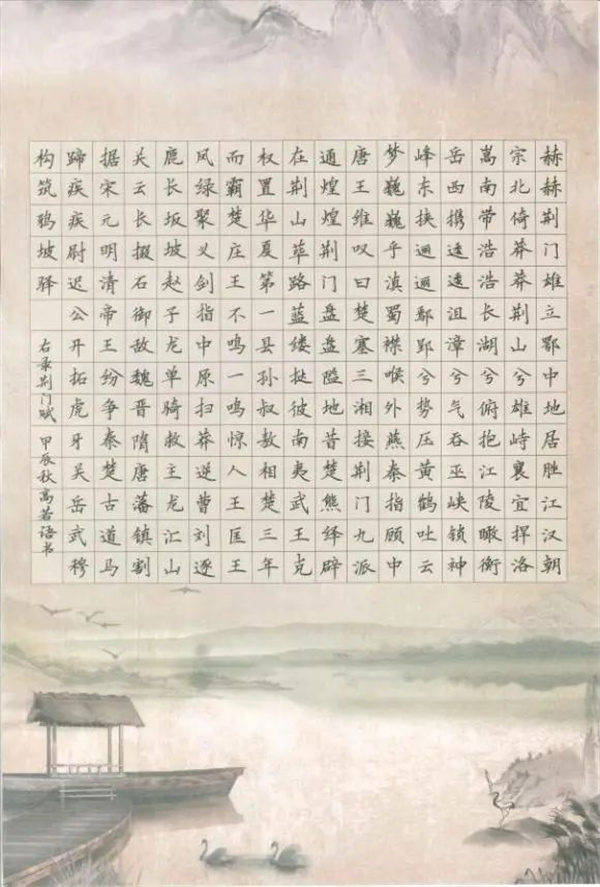 赫赫荆门雄立鄂中地居胜江汉朝
宗北倚莽莽荆山兮雄峙襄宜捍洛
嵩南带浩浩长湖兮俯抱江陵瞰衡
岳西携逶逶沮漳兮气吞巫峡锁神
峰东挟逦逦鄢郢兮势压黄鹤吐云
梦巍巍乎滇蜀襟喉外燕秦指顾中
唐王维叹曰楚塞三湘接荆门九派
通煌煌荆门盘盘隘地昔楚熊绎辟
在荆山荜路蓝缕挞彼南夷武王克
权置华夏第一县孙叔敖相楚三年
而霸楚庄王不鸣一鸣惊人王匡王
凤绿聚义剑指中原扫莽逆曹刘逐
鹿长坂坡赵子龙单骑救主龙汇山
关云长掇石御敌魏晋隋唐藩镇割
据宋元明清帝王纷争秦楚古道马
蹄疾疾尉迟公开拓虎牙吴岳武穆
构筑鸦坡驿
右录荆门赋 甲辰秋高若语书